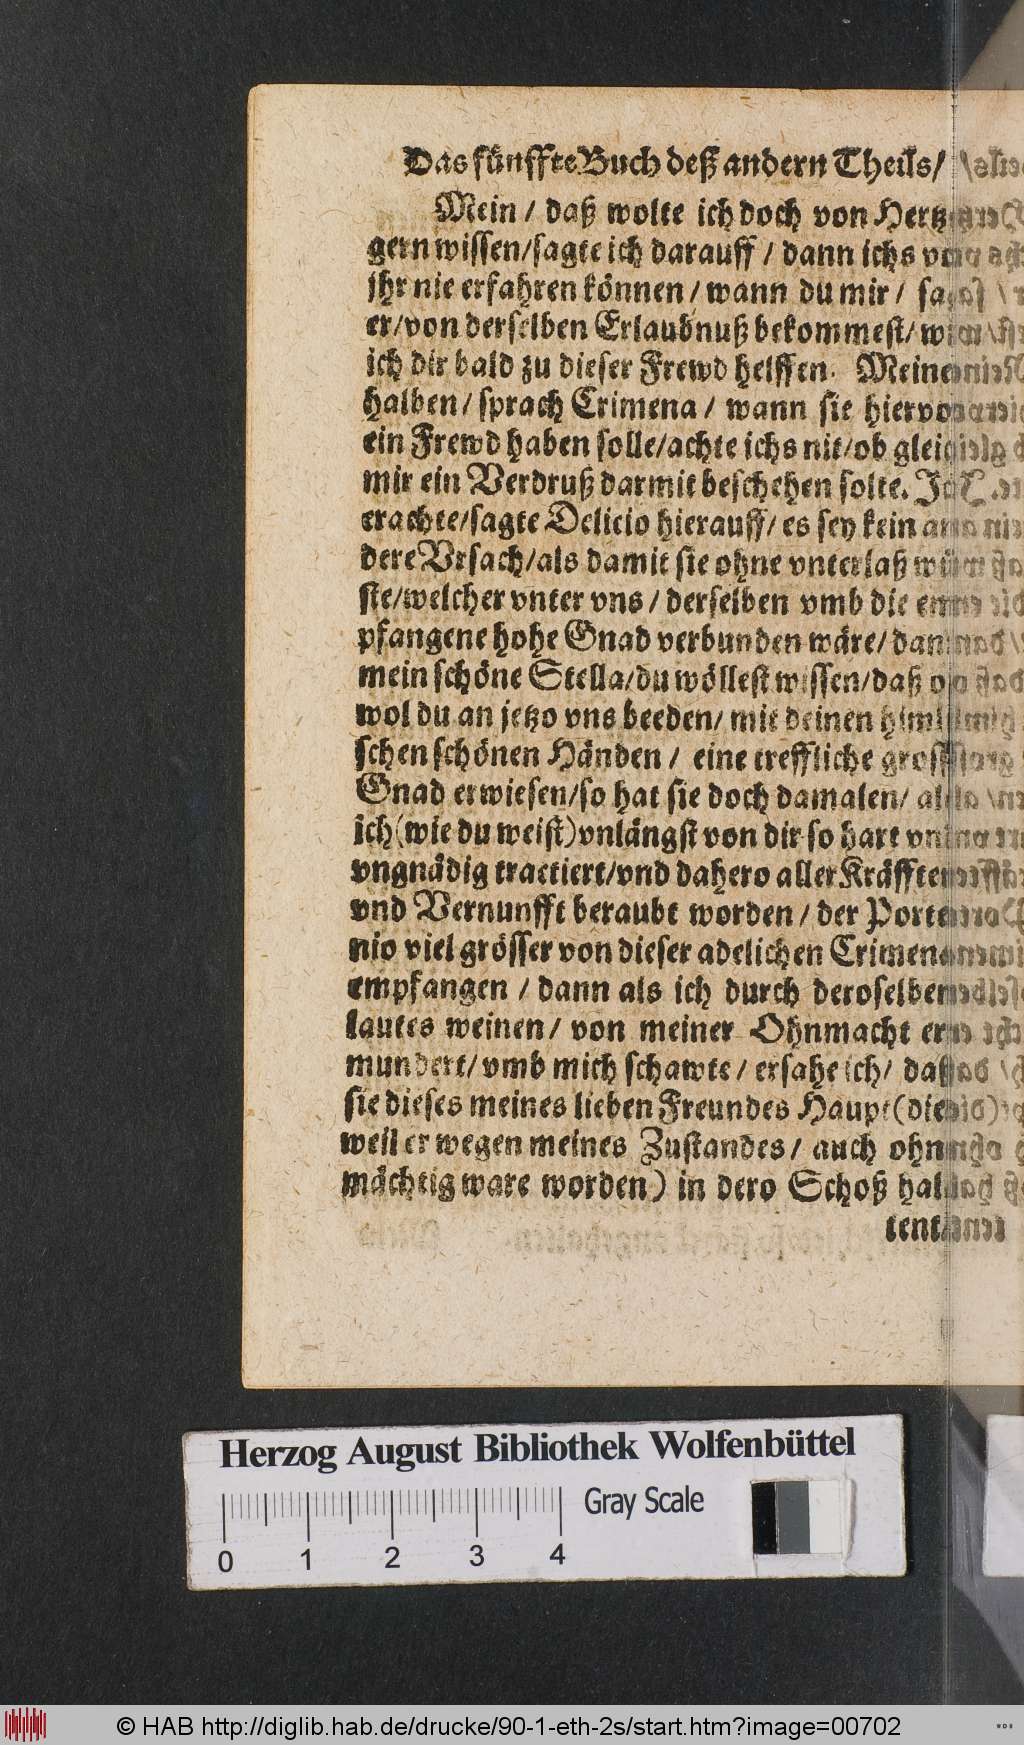 Das fünffte Buch deß andern Theils/
Mein / daß wolte ich doch von Hertzen
gern wissen/sagte ich darauff / dann ichs von
jhr nie erfahren können / wann du mir / sagt
er/von derselben Erlaubnuß bekommest/ will
ich dir bald zu dieser Frewd helffen. Meinet-
halben/ sprach Crimena / wann sie hiervon
ein Frewd haben solle/achte ichs nit/ob gleich
mir ein Verdruß darmit beschehen solte. Ich
erachte/sagte Delicio hierauff/ es sey kein an-
dere Vrsach/als damit sie ohne vnterlaß wü-
ste/welcher vnter vns / derselben vmb die em-
pfangene hohe Gnad verbunden wäre/ dann
mein schöne Stella/du wöllest wissen/daß ob
wol du an jetzo vns beeden/ mit deinen himli-
schen schönen Händen / eine treffliche grosse
Gnad erwiesen/so hat sie doch damalen/ als
ich(wie du weist)vnlängst von dir so hart vnd
vngnädig tractiert/vnd dahero aller Kräfften
vnd Vernunfft beraubt worden / der Parte-
nio viel grösser von dieser adelichen Crimena
empfangen / dann als ich durch deroselben
lautes weinen/ von meiner Ohnmacht er-
mundert/vmb mich schawte / ersahe ich/ daß
sie dieses meines lieben Freundes Haupt(die-
weil er wegen meines Zustandes / auch ohn-
mächtig ware worden) in dero Schoß hal-
tent/
Herzog August Bibliothek Wolfenbüttel
Gray Scale
0 1 2 3 4
© HAB http://diglib.hab.de/drucke/90-1-eth-2s/start.htm?image=00702